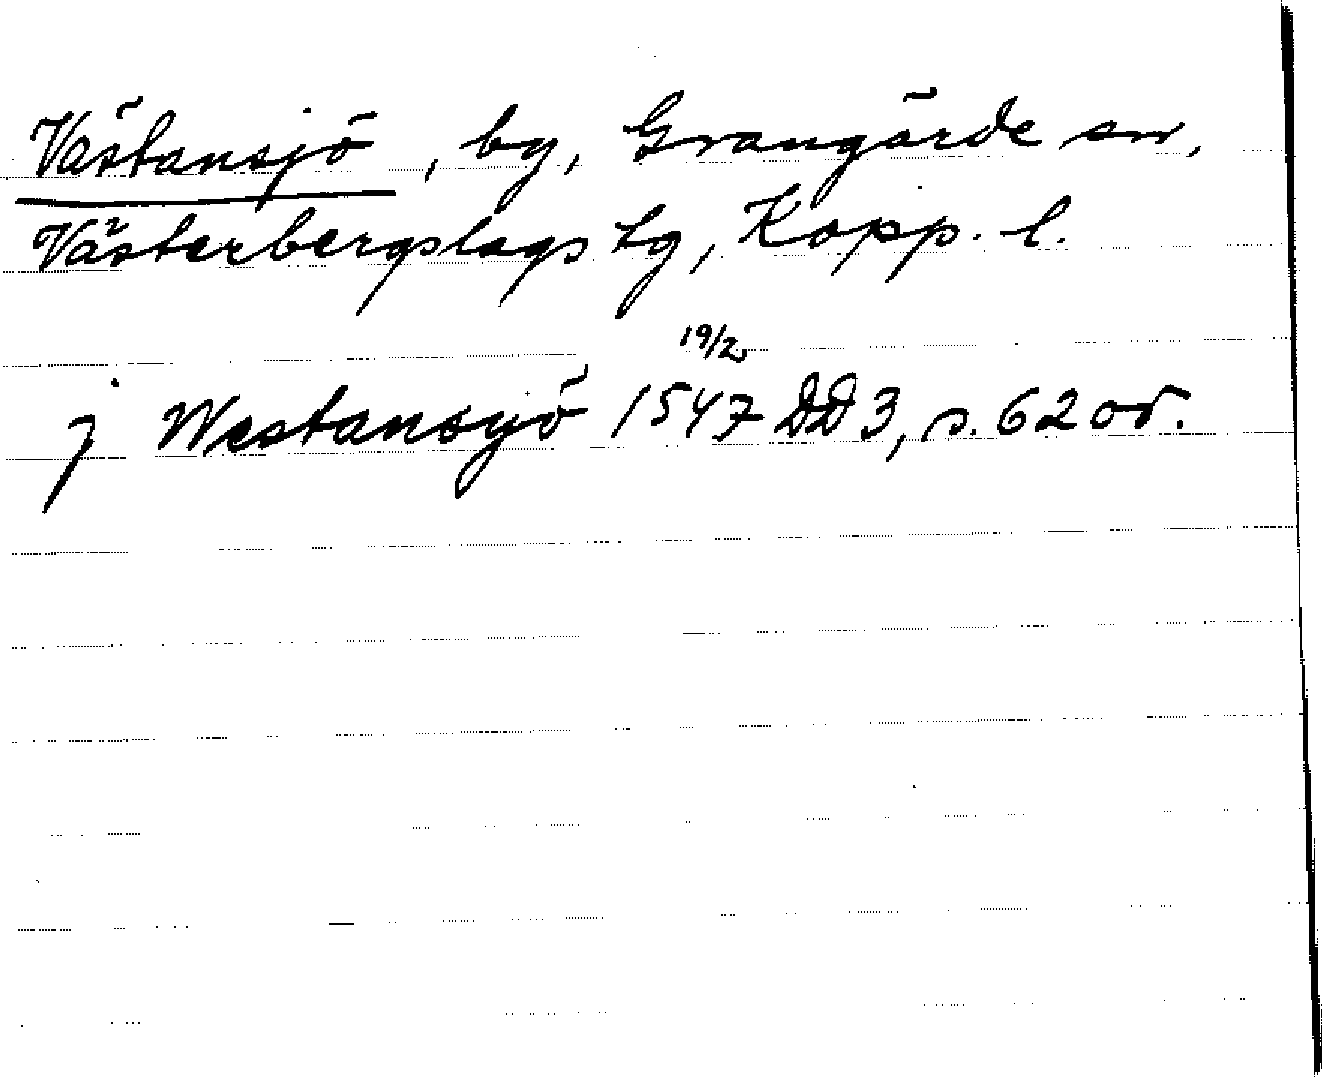 Västansjö, by, Grangärde sn,
Västerbergslags tg, Kopp. l.
19/2
j Westansyö 1547 DD 3, s. 62 or.